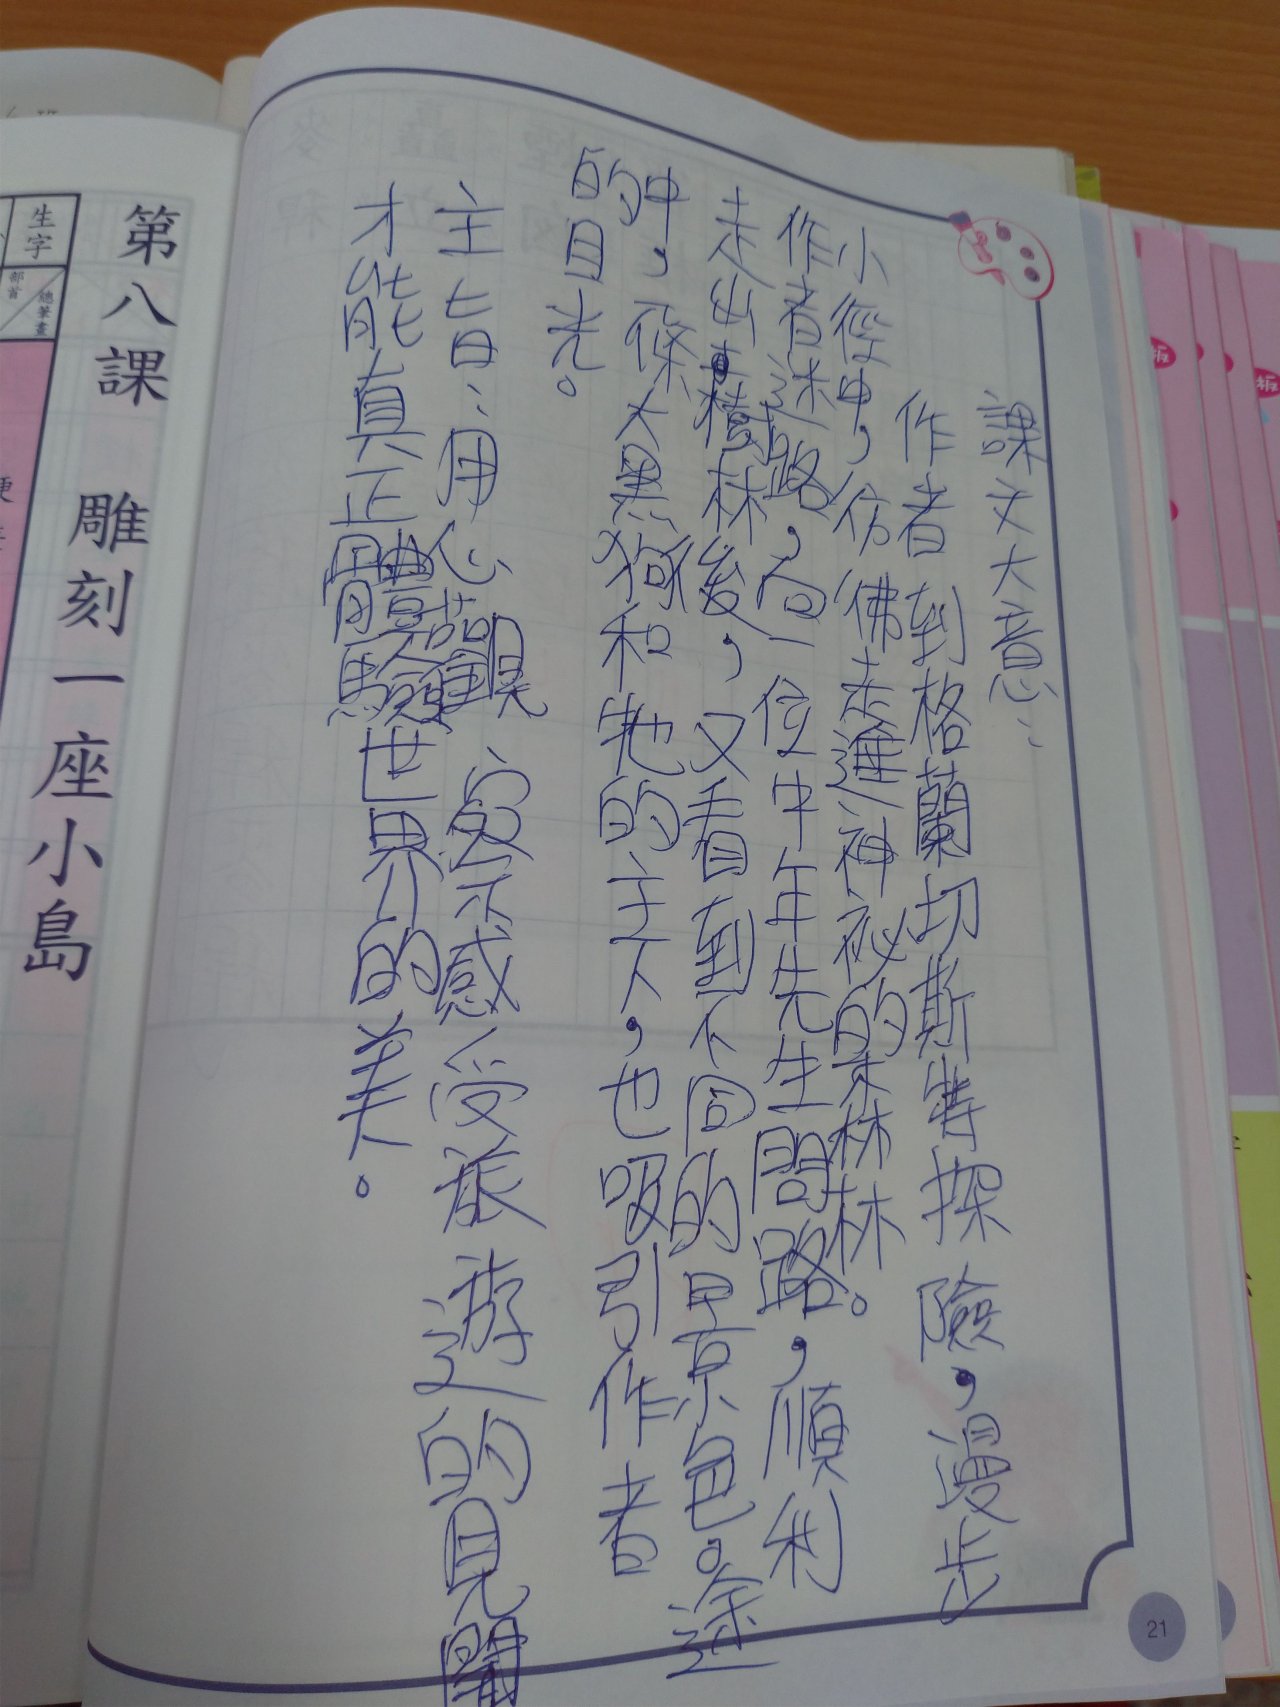 課文大意：
作者到格蘭切斯特探險，漫步
小徑中，彷彿走進神祕的森林。
作者迷路，向一位中年先生問路，順利
走出樹林後，又看到不同的景色。途
中，一條大黑狗和牠的主人，也吸引作者
的目光。
主旨：用心觀察、感受旅遊的見聞
才能真正體驗世界的美。
第八課 雕刻一座小島
生字
部首
總筆畫
21
板
板